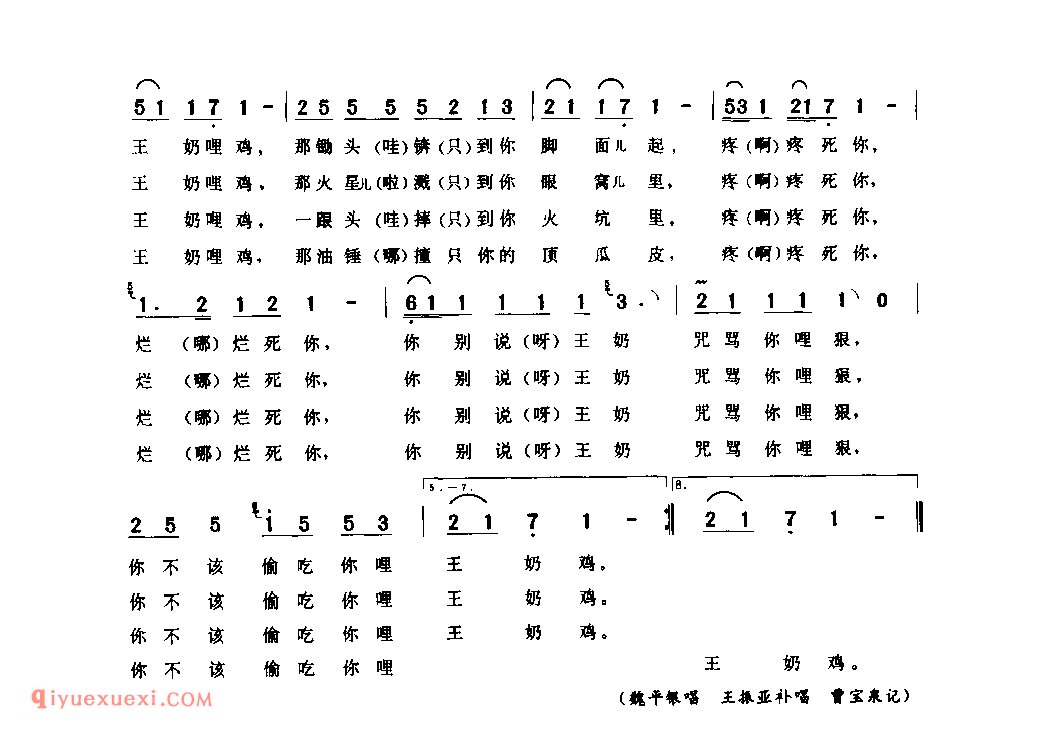 51 17 1 - | 25 5 5 5 2 13 | 21 17 1 - | 531 217 1 - |
王 奶哩鸡, 那锄头(哇)镑(只)到你 脚 面儿起, 疼(啊)疼 死你,
王 奶哩鸡, 那火星儿(啦)溅(只)到你 眼 窝儿里, 疼(啊)疼 死你,
王 奶哩鸡, 一跟头(哇)摔(只)到你 火 坑 里, 疼(啊)疼 死你,
王 奶哩鸡, 那油锤(哪)撞只你的 顶 瓜 皮, 疼(啊)疼 死你,
1. 2 1 2 1 - | 61 1 1 1 1 3. | 2 1 1 1 1 0
烂 (哪)烂 死 你, 你 别 说(呀)王 奶 咒 骂 你 哩 狠,
烂 (哪)烂 死 你, 你 别 说(呀)王 奶 咒 骂 你 哩 狠,
烂 (哪)烂 死 你, 你 别 说(呀)王 奶 咒 骂 你 哩 狠,
烂 (哪)烂 死 你, 你 别 说(呀)王 奶 咒 骂 你 哩 狠,
5.—7. 8.
2 5 5 i 5 5 3 | 2 1 7 1 - :‖ 2 1 7 1 - ‖
你 不 该 偷 吃 你 哩 王 奶 鸡。
你 不 该 偷 吃 你 哩 王 奶 鸡。
你 不 该 偷 吃 你 哩 王 奶 鸡。
你 不 该 偷 吃 你 哩 王 奶 鸡。
(魏平银唱 王振亚补唱 曹宝泉记)
qiyuexuexi.COM